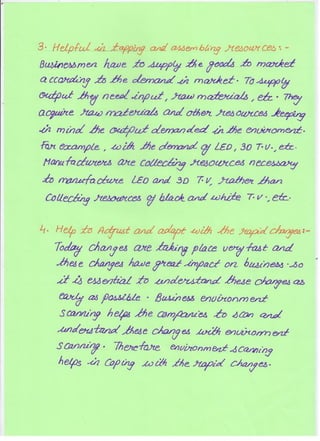 3. Helpful in tapping and assembling resources:-
Businessmen have to supply the goods to market
according to the demand in market. To supply
output they need input, raw materials, etc. They
acquire raw materials and other resources keeping
in mind the output demanded in the enviroment.
For example, with the demand of LED, 3D T.V., etc.
Manufacturers are collecting resources necessary
to manufacture LED and 3D T.V, rather than
collecting resources of black and white T.V., etc.
4. Help to Adjust and adapt with the rapid changes:-
Today changes are taking place very fast and
these changes have great impact on business. So
it is essential to understand these changes as
early as possible. Business environment
scanning helps the companies to scan and
understand these changes with environment
scanning. Therefore environment scanning
helps in coping with the rapid changes.